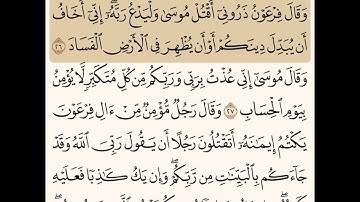 وَقَالَ فِرْعَوْنُ ذَرُونِىٓ أَقْتُلْ مُوسَىٰ وَلْيَدْعُ رَبَّهُۥٓ ۖ إِنِّىٓ أَخَافُ
أَن يُبَدِّلَ دِينَكُمْ أَوْ أَن يُظْهِرَ فِى ٱلْأَرْضِ ٱلْفَسَادَ ٢٦
وَقَالَ مُوسَىٰٓ إِنِّى عُذْتُ بِرَبِّى وَرَبِّكُم مِّن كُلِّ مُتَكَبِّرٍ لَّا يُؤْمِنُ
بِيَوْمِ ٱلْحِسَابِ ٢٧ وَقَالَ رَجُلٌ مُّؤْمِنٌ مِّنْ ءَالِ فِرْعَوْنَ
يَكْتُمُ إِيمَـٰنَهُۥٓ أَتَقْتُلُونَ رَجُلًا أَن يَقُولَ رَبِّىَ ٱللَّهُ وَقَدْ
جَآءَكُم بِٱلْبَيِّنَـٰتِ مِن رَّبِّكُمْ ۖ وَإِن يَكُ كَـٰذِبًا فَعَلَيْهِ